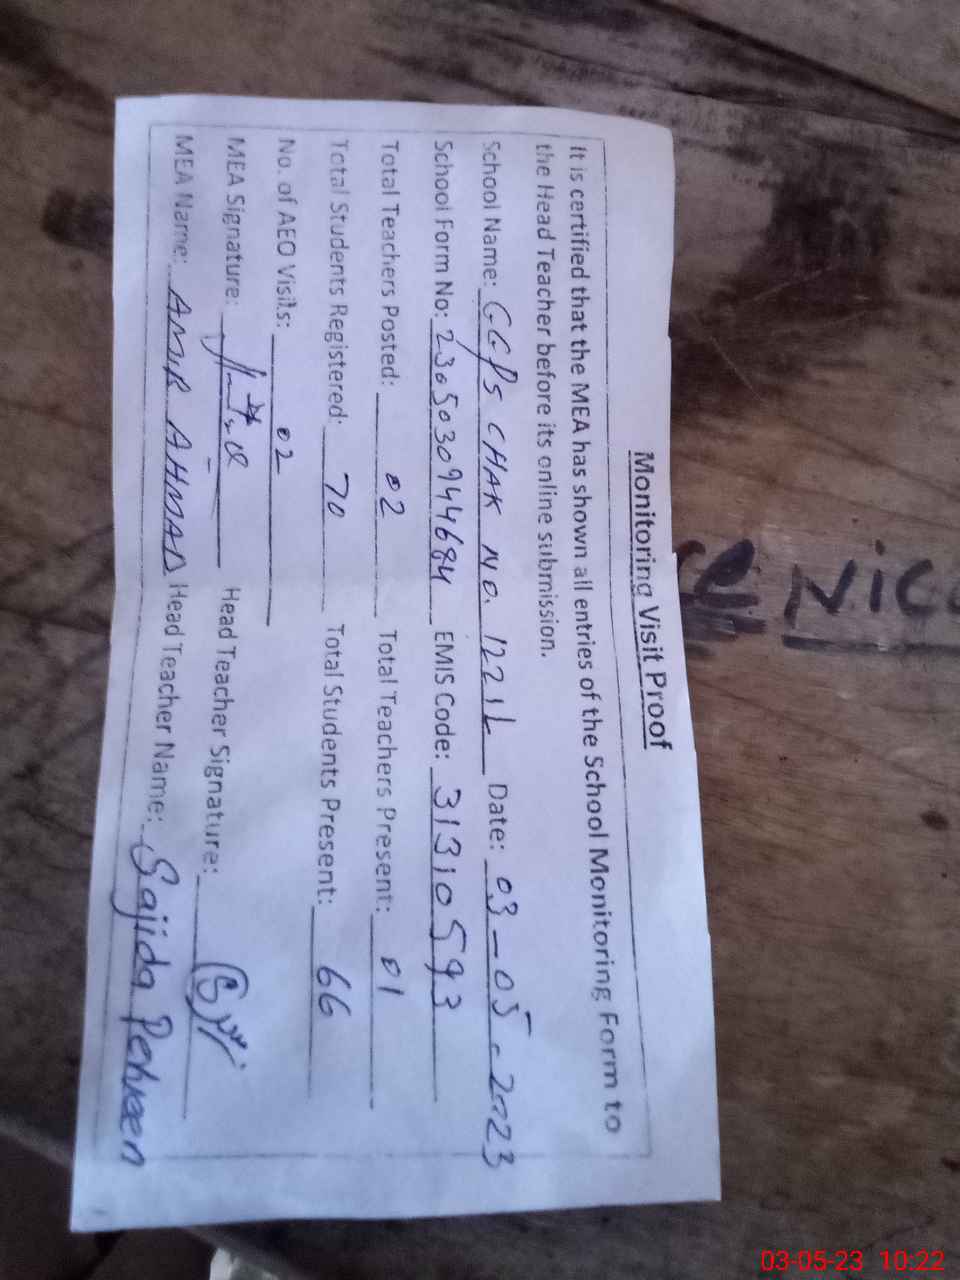 Monitoring Visit Proof
It is certified that the MEA has shown all entries of the School Monitoring Form to
the Head Teacher before its online submission.
School Name: GGPS CHAK NO. 122 1L Date: 03-05-2023
School Form No: 2305030944684 EMIS Code: 31310593
Total Teachers Posted: 02 Total Teachers Present: 01
Total Students Registered: 70 Total Students Present: 66
No. of AEO Visits: 02
MEA Signature: Head Teacher Signature:
MEA Name: AMIR AHMAD Head Teacher Name: Sajida Perveen
NIC
03-05-23 10:22